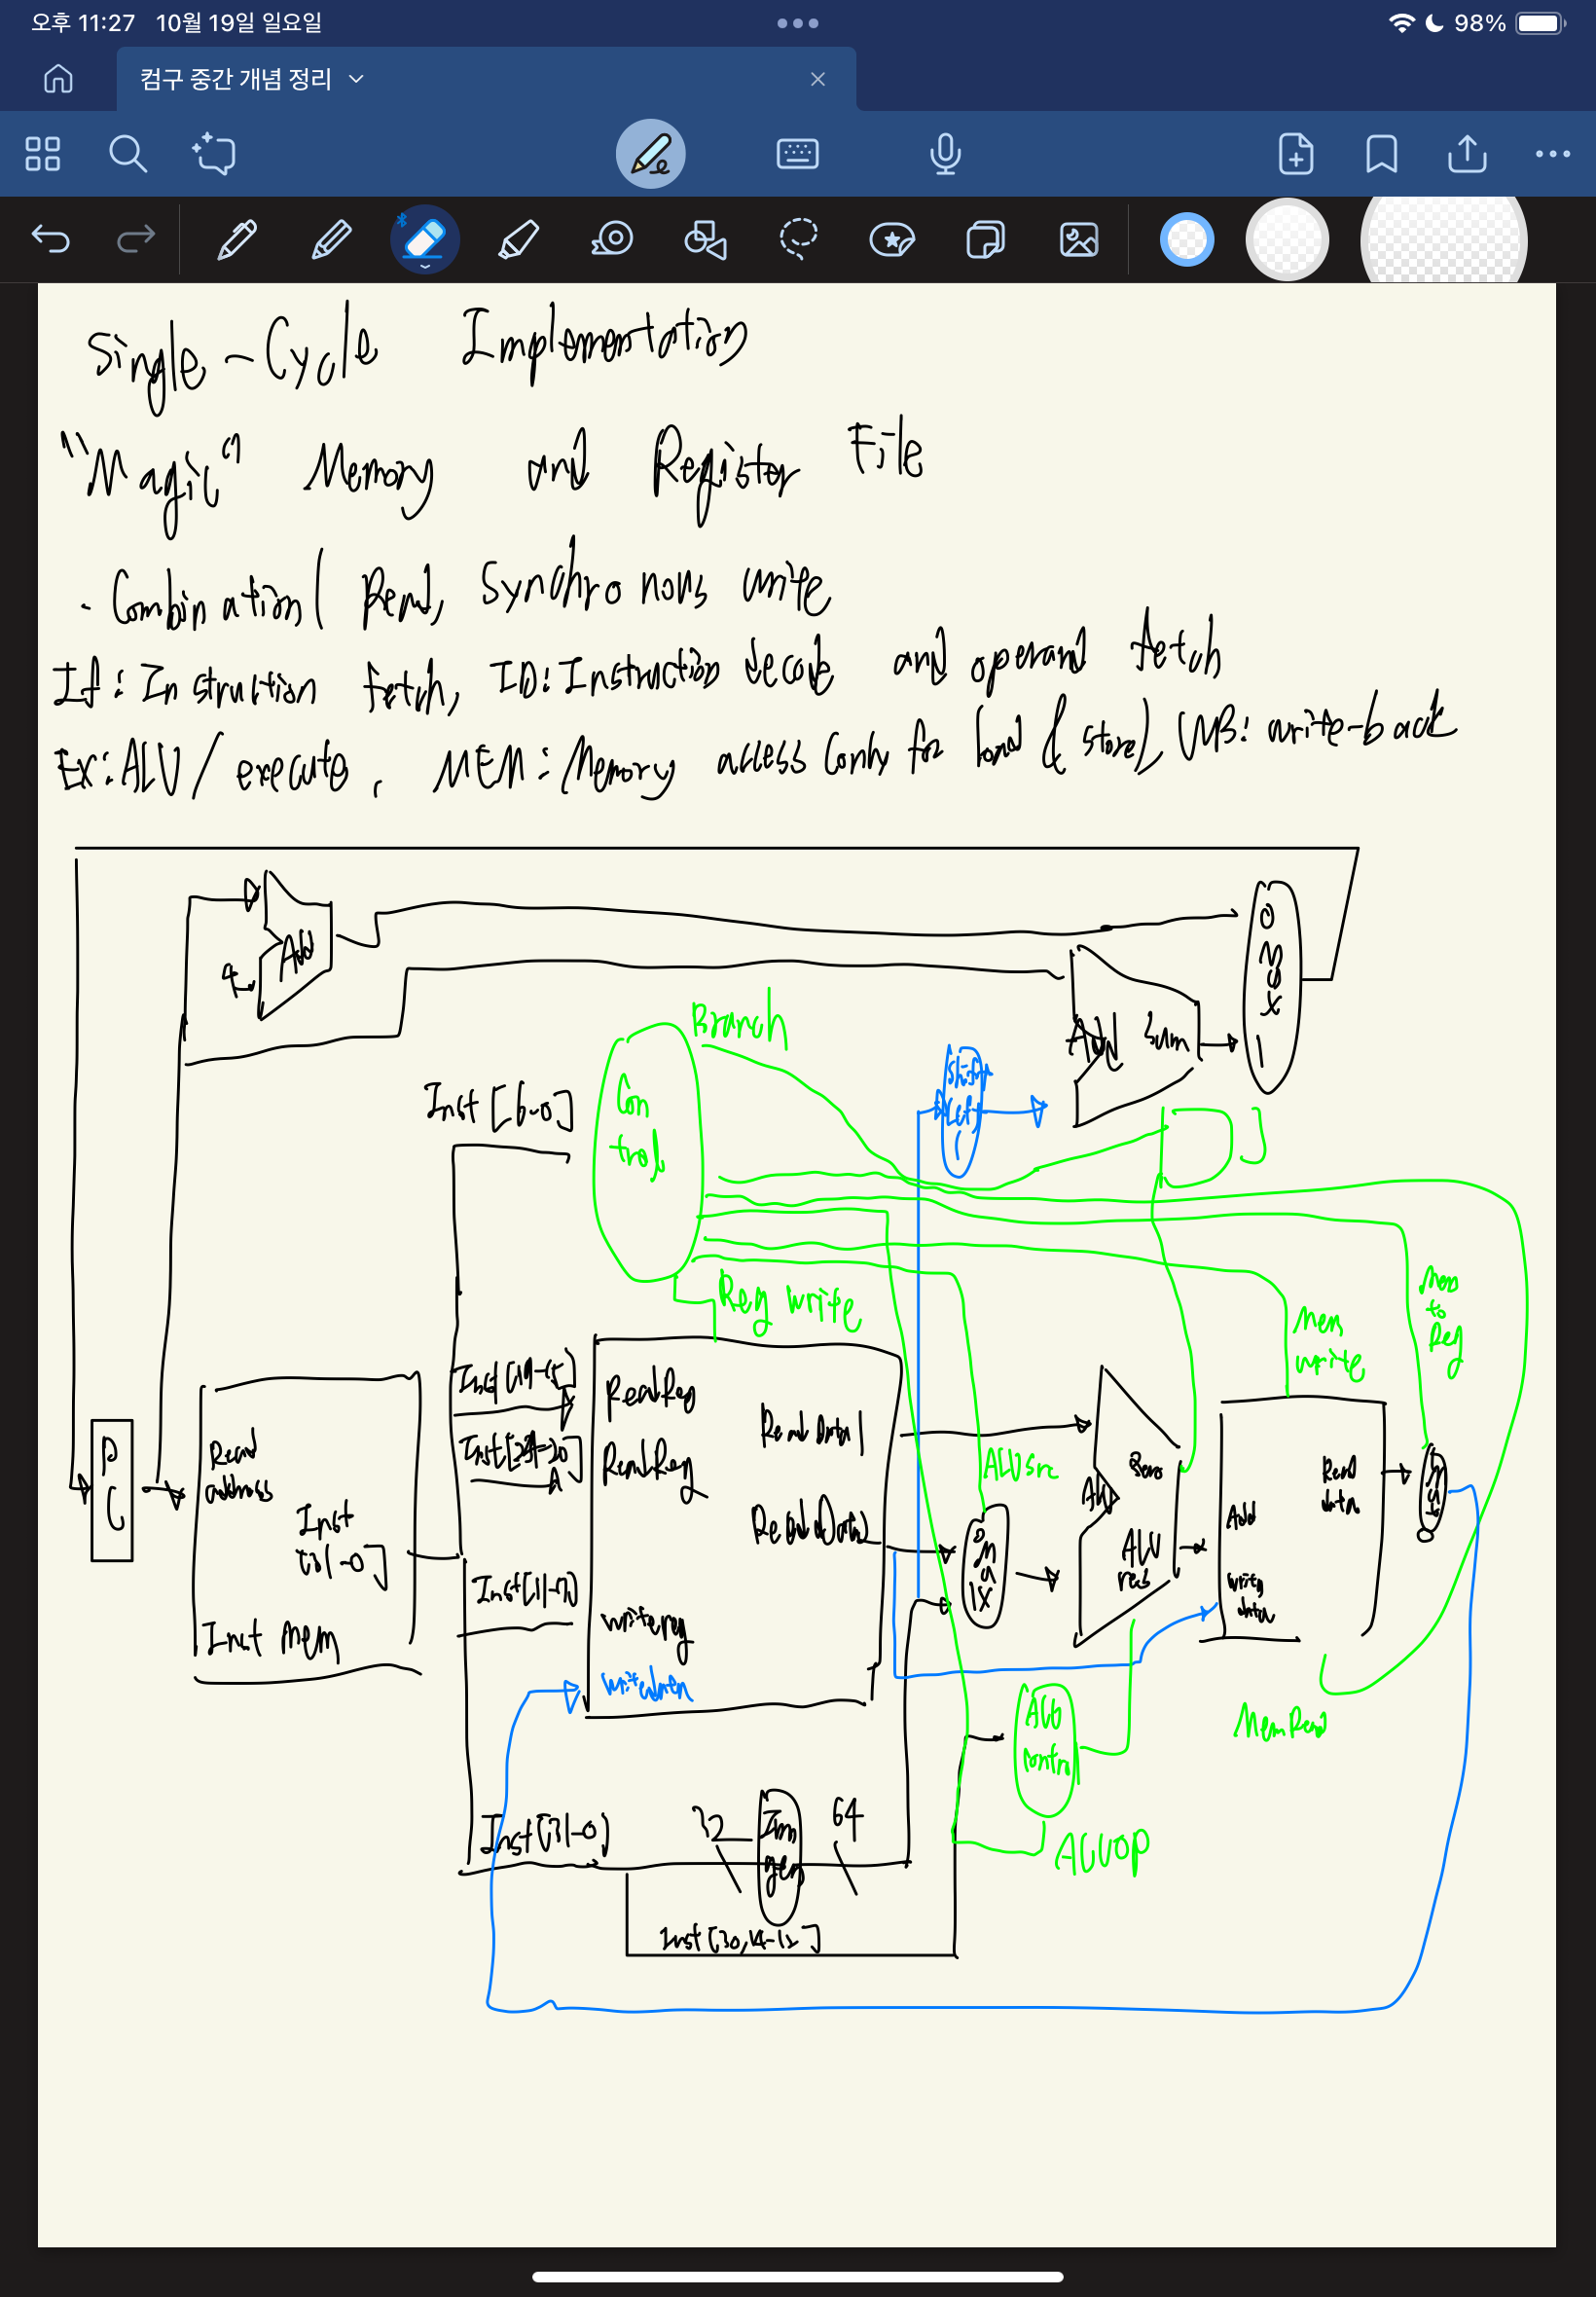 오후 11:27 10월 19일 일요일
98%
컴구 중간 개념 정리
Single-Cycle Implementation
"Magic" Memory and Register File
- Combination( Read, Synchronous write
If: Instruction fetch, ID: Instruction decode and operand fetch
Ex: ALU/execute, MEM: Memory access (only for load & store) WB: write-back
Add
4
0
mux
1
Add Sum
Branch
Inst [6-0]
Con
trol
Shift
Left
1
Reg write
Mem
write
Mem
to
Reg
PC
Read
address
Inst
[31-0]
Inst Mem
Inst[19-15]
Inst[24-20]
Inst[11-7]
ReadReg
ReadReg
Read Data1
Read Data2
writereg
writedata
ALUsrc
0
mux
1
Zero
ALU
ALU
res
Add
write
data
Read
data
1
mux
0
ALU
control
MemRead
Inst[31-0]
32
Imm
gen
64
ALUOP
Inst[30,14-12]